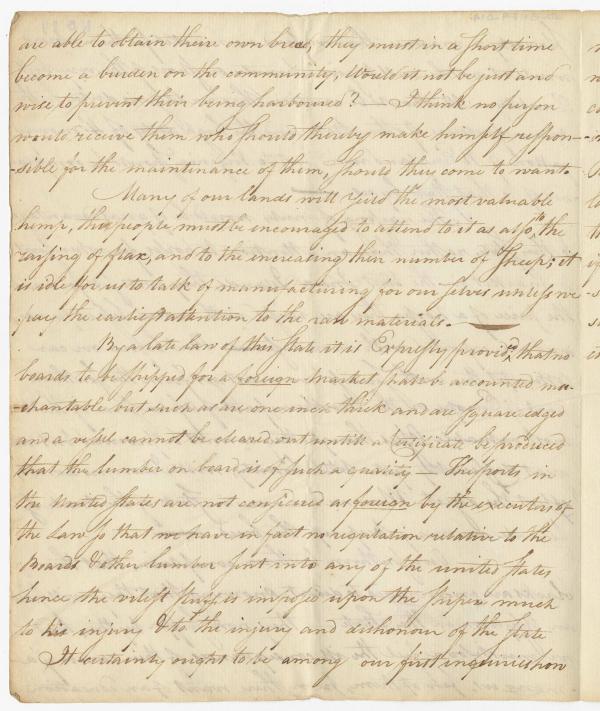 are able to obtain theire own bred, they must in a short time
become a burden on the community, Would it not be just and
wise to prevent their being harboured? — I think no person
would receive them who should thereby make himself respon-
-sible for the maintenance of them, should they come to want.
Many of our lands will yeild the most valuable
hemp, the people must be encouraged to attend to it as also to the
raising of flax, and to the increasing their number of Sheep; it
is idle for us to talk of manufacturing for our selves unless we
pay the earliest attention to the raw materials. —
By a late law of this State it is Expressly provided, that no
boards to be shipped for a foreign market shall be accounted mer
-chantable but such as are one inch thick and are square edged
and a vessel cannot be cleared out untill a Certificate be produced
that the lumber on board is of such a quality — The ports in
the United States are not considered as foreign by the executors of
the Law so that we have in fact no regulation relative to the
Boards & other lumber sent into any of the united States
hence the vilest stuff is imposed upon the shiper much
to his injury & to the injury and dishonour of the State
It certainly ought to be among our first inquiries how